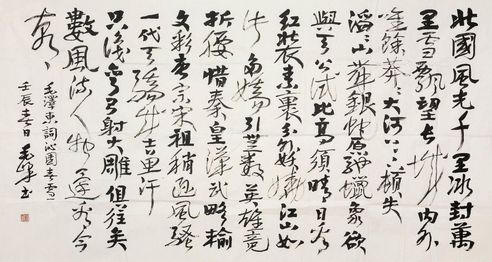 北國風光千里冰封萬
里雪飄望長城内外
惟餘莽〻大河上下頓失
滔〻山舞銀蛇原馳蠟象欲
與天公試比高須晴日看
紅裝素裹分外妖嬈江山如
此多嬌引無數英雄競
折腰惜秦皇漢武略輸
文彩唐宗宋祖稍遜風騷
一代天驕成吉思汗
只識彎弓射大雕俱往矣
數風流人物還看今
朝
毛澤東詞沁園春雪
壬辰春日毛書